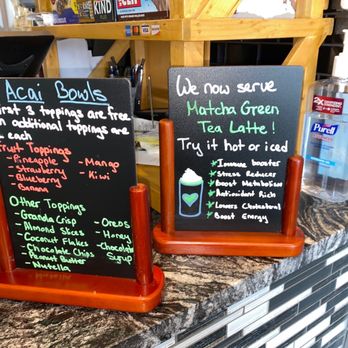 KIND
Acai Bowls
First 3 toppings are free
additional toppings are
each
Fruit Toppings
- Pineapple
- Strawberry
- Blueberry
- Banana
- Mango
- Kiwi
Other Toppings
- Granola Crisp
- Almond Slices
- Coconut Flakes
- Chocolate Chips
- Peanut Butter
- Nutella
- Oreos
- Honey
- Chocolate
Syrup
We now serve
Matcha Green
Tea Latte!
Try it hot or iced
Immune booster
Stress Reducer
Boost Metabolism
Antioxidant Rich
Lowers Cholesterol
Boost Energy
Purell